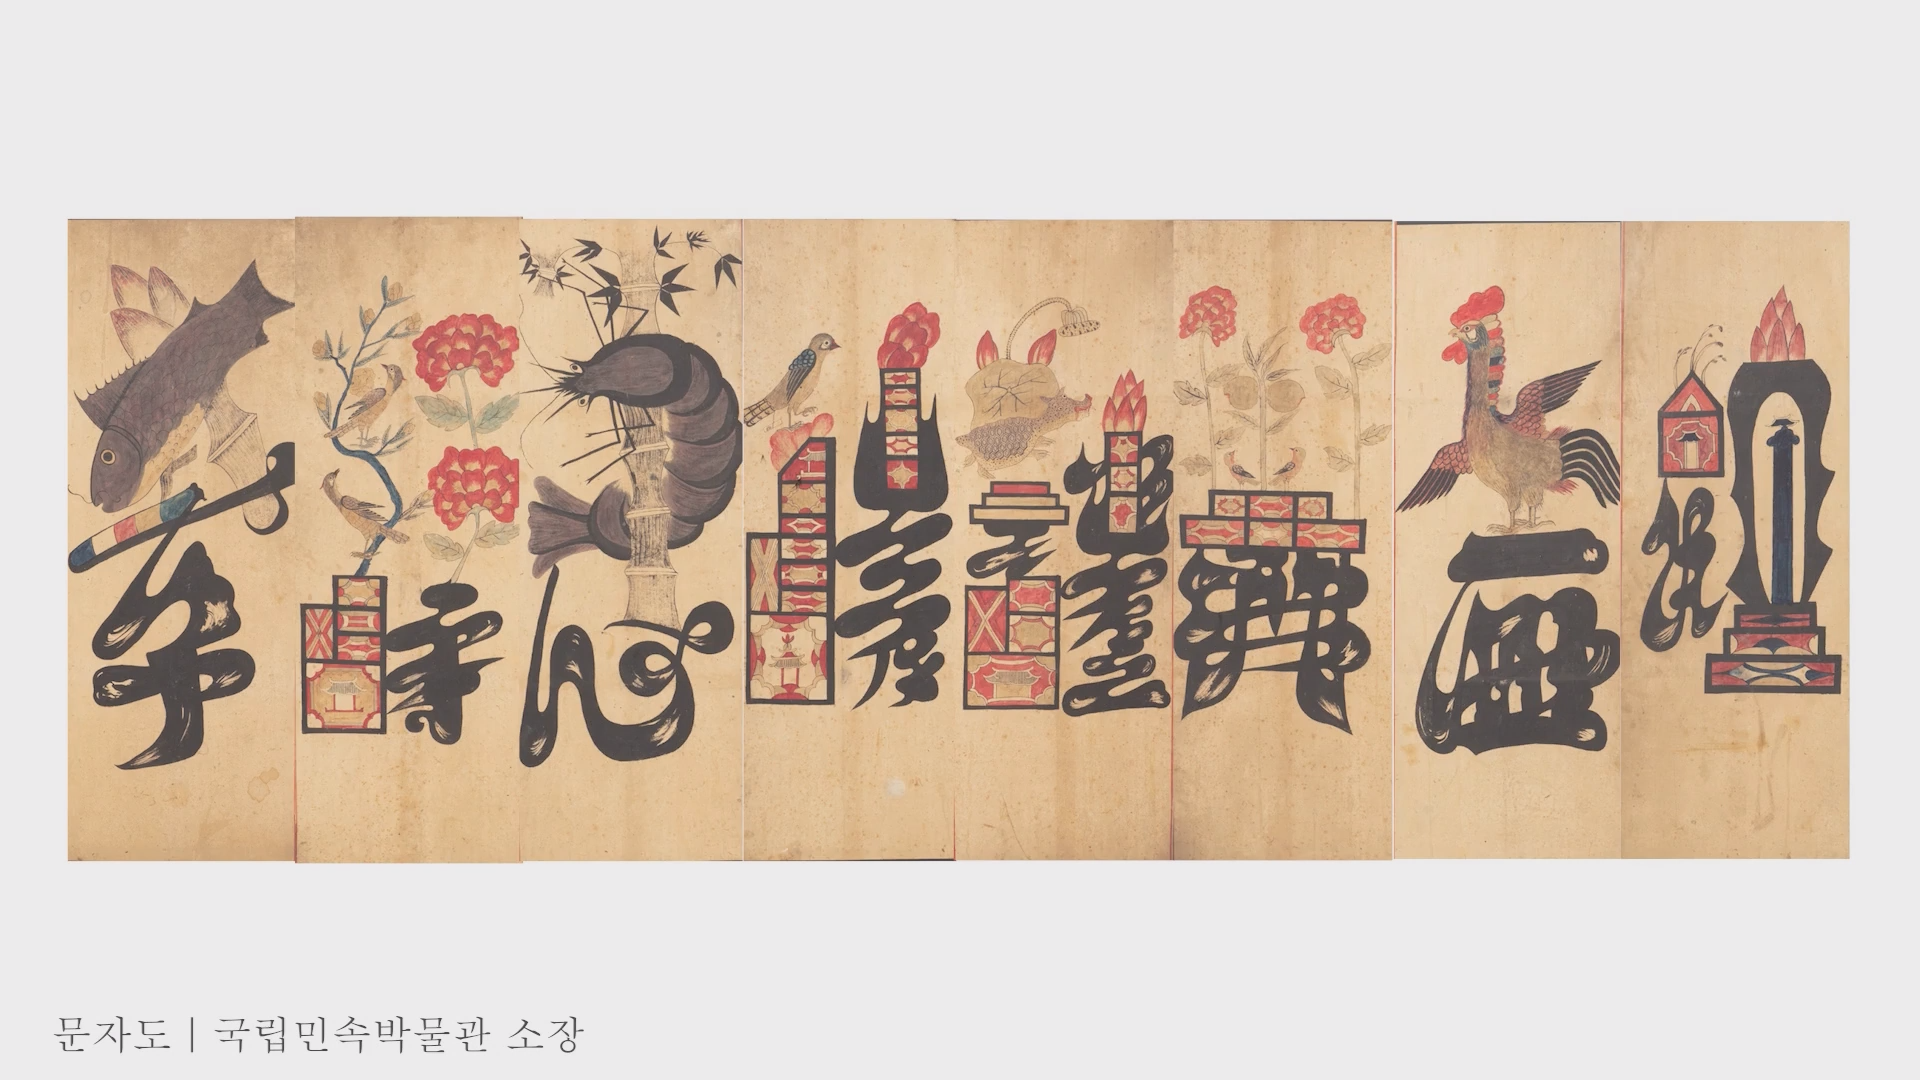 孝
悌
忠
信
禮
義
廉
恥
문자도 | 국립민속박물관 소장